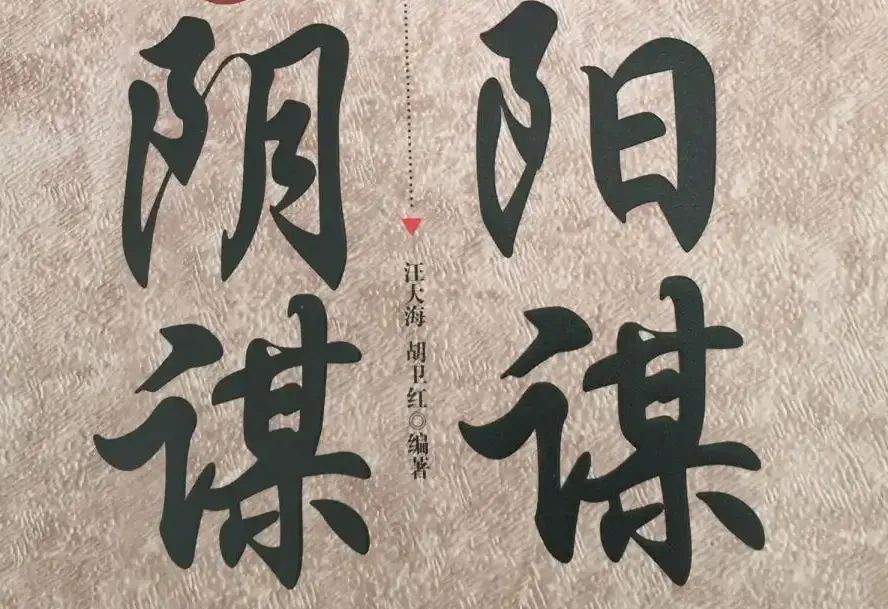 阳谋
阴谋
汪大海 胡卫红◎编著